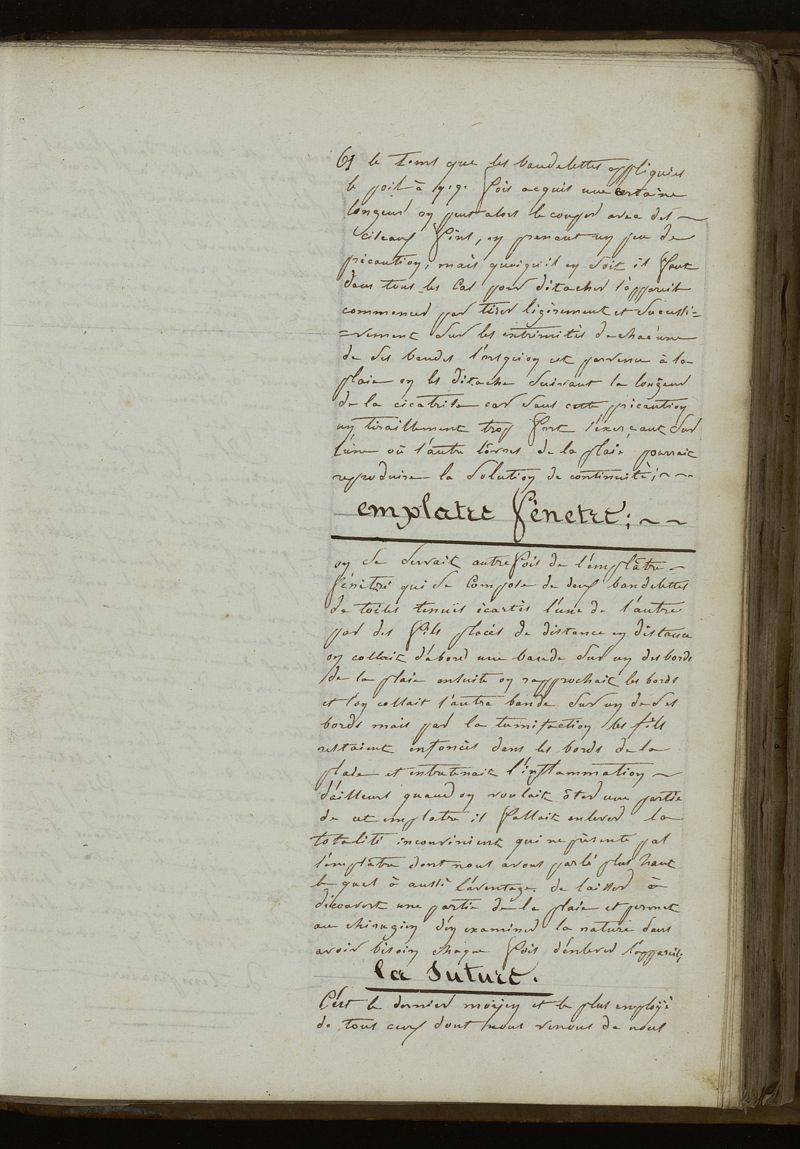 61 le Tems que les bandelettes appliquées
le poil à q.q. fois acquis une certaine
longeur on peut alors le couper avec des
Ciseaux fins, en prenant un peu de
précaution; mais quoiqu'il en soit il faut
dans tous les Cas pour détacher l'appareil
commencer par tirer légèrement et Sucessi=
=vement Sur les extrimités de chacune
de Ses bandes lorsqu'on est parvenu à la
plaie on les détache Suivant la longeur
de la cicatrise car Sans cette précaution
un tiraillement trop fort S'exerçant Sur
l'une où l'autre lèvres de la plaie pourrait
reproduire la Solution de continuité;
emplatre fénetré;
on Se Servait autrefois de l'emplâtre
fénétré qui Se Compose de deux bandelettes
de toiles tenuës écartés l'une de l'autre
par des fils placés de distance en distance
on collait d'abord une bande Sur un des bords
de la plaie ensuite on rapprochait les bords
et l'on collait l'autre bande Sur un de Ses
bords mais par la tumifaction les fils
restaient enfoncés dans les bords de la
plaie et entretenait l'inflammation
d'ailleurs quand on voulait ôter une partie
de cet emplatre il fallait enlever la
totalité inconvénient qui ne présente pas
l'emplâtre dont nous avons parlé plus haut
le quel à aussi l'aventage de laisser à
découvert une partie de la plaie et permet
au chirugien d'en examiner la nature Sans
avoir besoin chaque fois d'enlever l'appareil;
la Suture.
C'est le dernier moÿen et le plus emploÿé
de tous ceux dont nous venons de nous